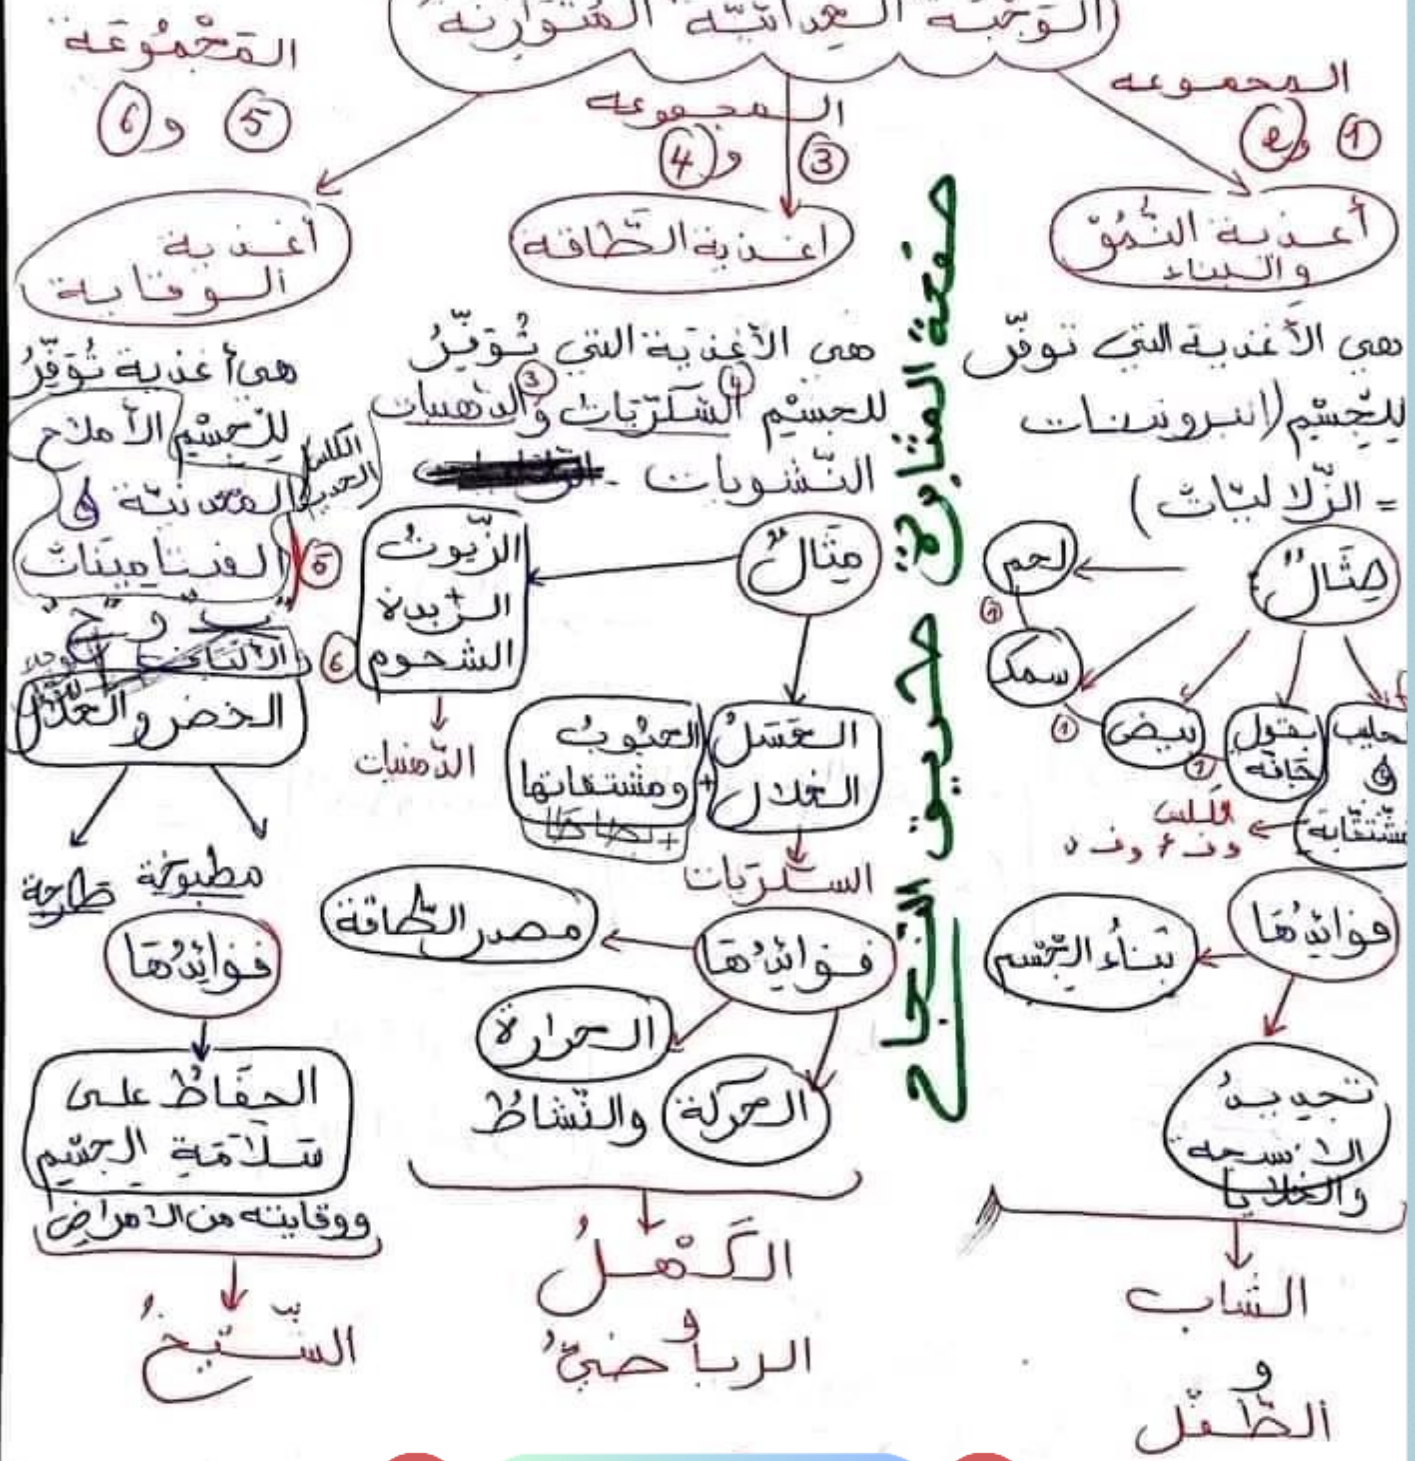 الوجبة الغذائية المتوازنة
المجموعه
1 و 2
أغذية النُّمُوّ
والبناء
هي الأغذية التي توفّر
للجِسْم (البروتينات
= الزّلاليّات)
مِثَالٌ:
لحم
1
سمك
1
بيض
1
بقول
جَافّه
حليب
و
مشتقّاته
فوائِدُهَا
بناءُ الجسم
تجديدُ
الانسجه
والخلايا
الشاب
و
الطّفل
المجموعه
3 و 4
اغذية الطّاقة
هي الأغذية التي تُوَفِّرُ
للجِسْم السّكّريّات 4 والدّهنيات 3
النّشويات
مِثَالٌ
الزّيوتُ
الزّبدة
الشحوم
الدّهنيات
العَسَلُ
الغلال
+
الحبُوبُ
ومشتقاتها
+ بطاطا
السّكّريّات
فوائِدُهَا
مصدر الطّاقة
الحرارة
الحركة والنّشاطُ
الكَهْلُ
و
الرياضيُّ
المَجْمُوعَة
5 و 6
أغذية
الوقاية
هي أغذية تُوَفِّرُ
للجِسْم الأملاح
المعدنيّة و
الكلس
الحديد
الفيتامينات
5
"ب" و "ج"
والألياف
6
الخضر والغلال
مطبوخة
طازجة
فوائِدُهَا
الحِفَاظُ على
سَلَامَةِ الجسْم
ووقايته من الأمراض
الشّيخُ
صفحة المثابرة طريق النجاح